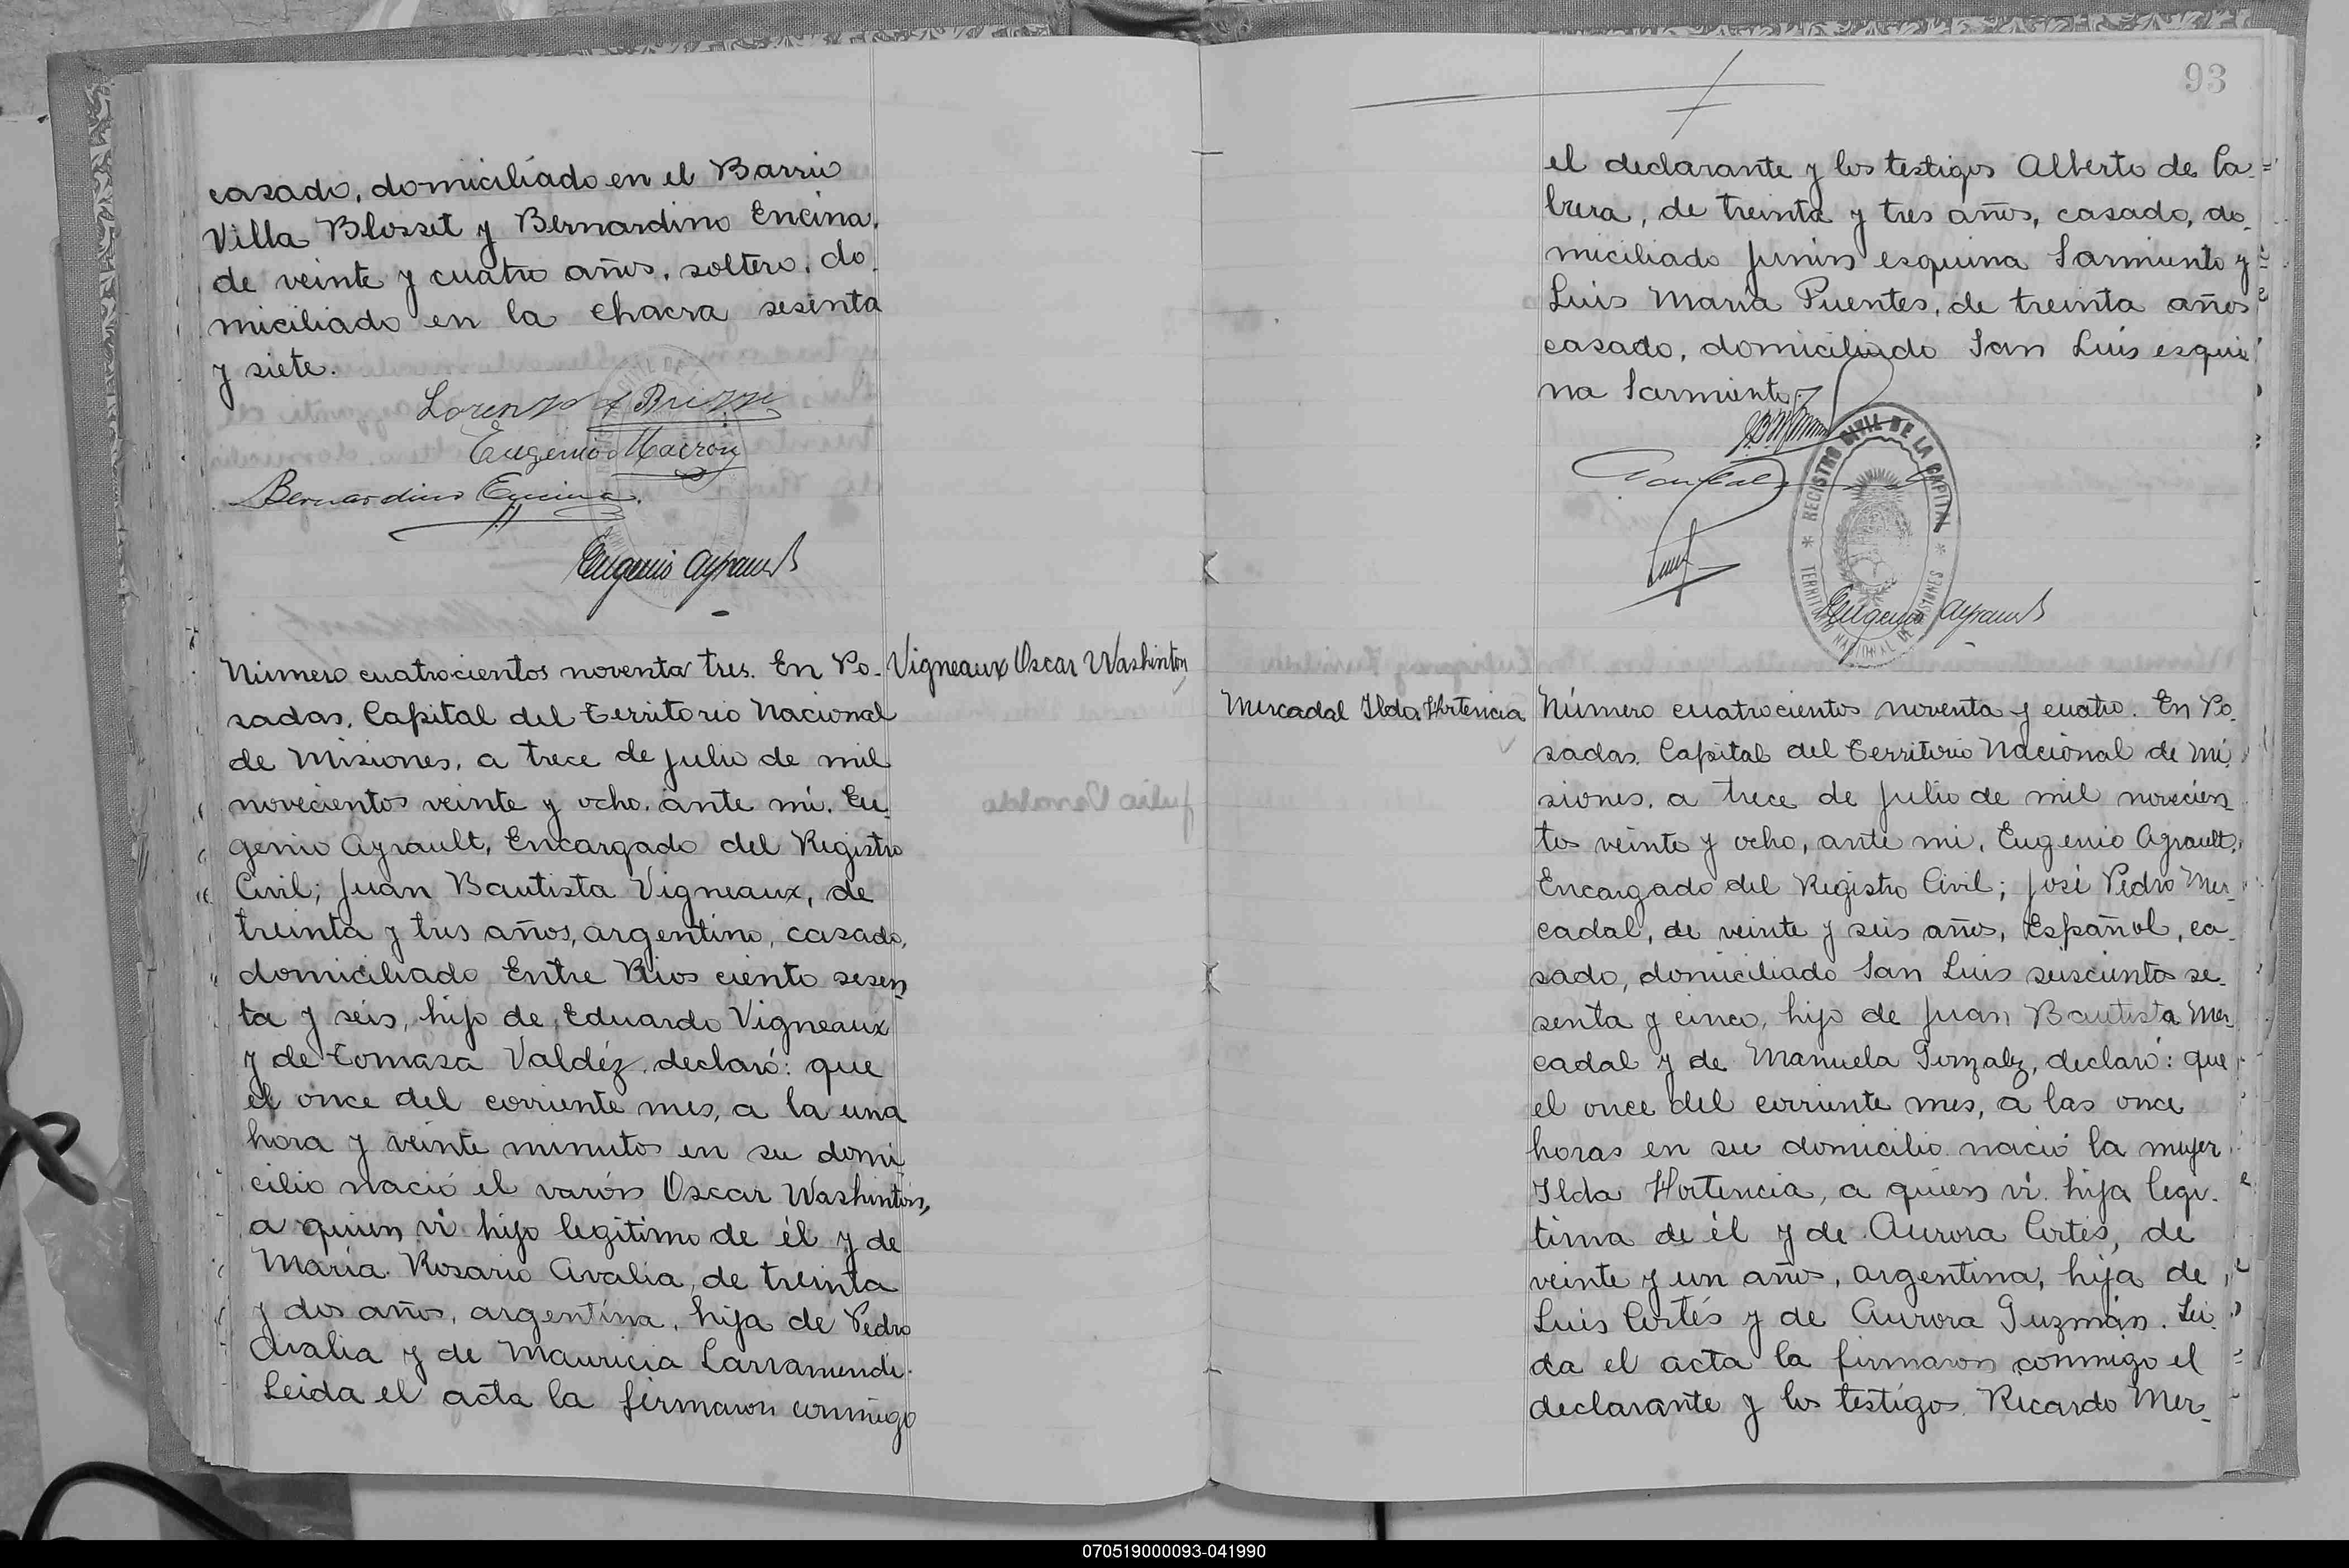 casado, domiciliado en el Barrio
Villa Blosset y Bernardino Encina,
de veinte y cuatro años, soltero, do-
miciliado en la chacra sesenta
y siete.
Lorenzo
Eugenio
Bernardino Encina
Eugenio Ayrault
Número cuatrocientos noventa tres. En Po-
sadas, Capital del Territorio Nacional
de Misiones, a trece de julio de mil
novecientos veinte y ocho, ante mí, Eu-
genio Ayrault, Encargado del Registro
Civil; Juan Bautista Vigneaux, de
treinta y tres años, argentino, casado,
domiciliado Entre Rios ciento sesen
ta y seis, hijo de Eduardo Vigneaux
y de Tomasa Valdéz, declaró: que
el once del corriente mes, a la una
hora y veinte minutos en su domi
cilio nació el varón Oscar Washintón,
a quien vi hijo legítimo de él y de
María Rosario Avalia, de treinta
y dos años, argentina, hija de Pedro
Avalia y de Mauricia Larramendi.
Leida el acta la firmaron conmigo
Vigneaux Oscar Washinton
93
el declarante y los testigos Alberto de Ca-
brera, de treinta y tres años, casado, do-
miciliado Junin esquina Sarmiento y
Luis María Puentes, de treinta años
casado, domiciliado San Luis esqui
na Sarmiento.
REGISTRO CIVIL DE LA CAPITAL
TERRITORIO NACIONAL DE MISIONES
Eugenio Ayrault
Mercadal Ilda Hortencia
Número cuatrocientos noventa y cuatro. En Po-
sadas, Capital del Territorio Nacional de Mi-
siones, a trece de julio de mil novecien
tos veinte y ocho, ante mi, Eugenio Ayrault,
Encargado del Registro Civil; José Pedro Mer-
cadal, de veinte y seis años, Español, ca-
sado, domiciliado San Luis seiscientos se-
senta y cinco, hijo de Juan Bautista Mer
cadal y de Manuela Gonzalz, declaró: que
el once del corriente mes, a las once
horas en su domicilio nació la mujer
Ilda Hortencia, a quien vi hija legi-
tima de él y de Aurora Cortés, de
veinte y un años, argentina, hija de
Luis Cortés y de Aurora Guzmán. Lei-
da el acta la firmaron conmigo el
declarante y los testigos Ricardo Mer-
070519000093-041990